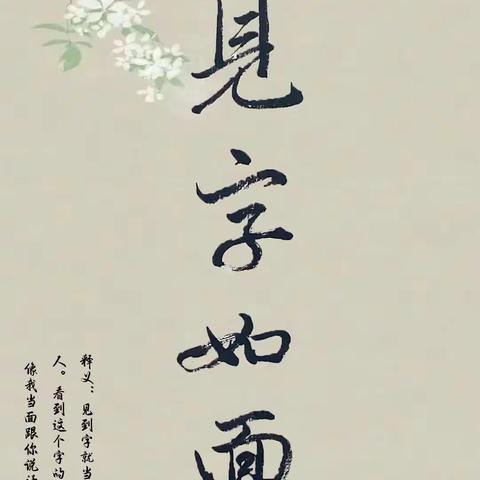 見字如面
释义：见到字就当
人。看到这个字的
像我当面跟你说